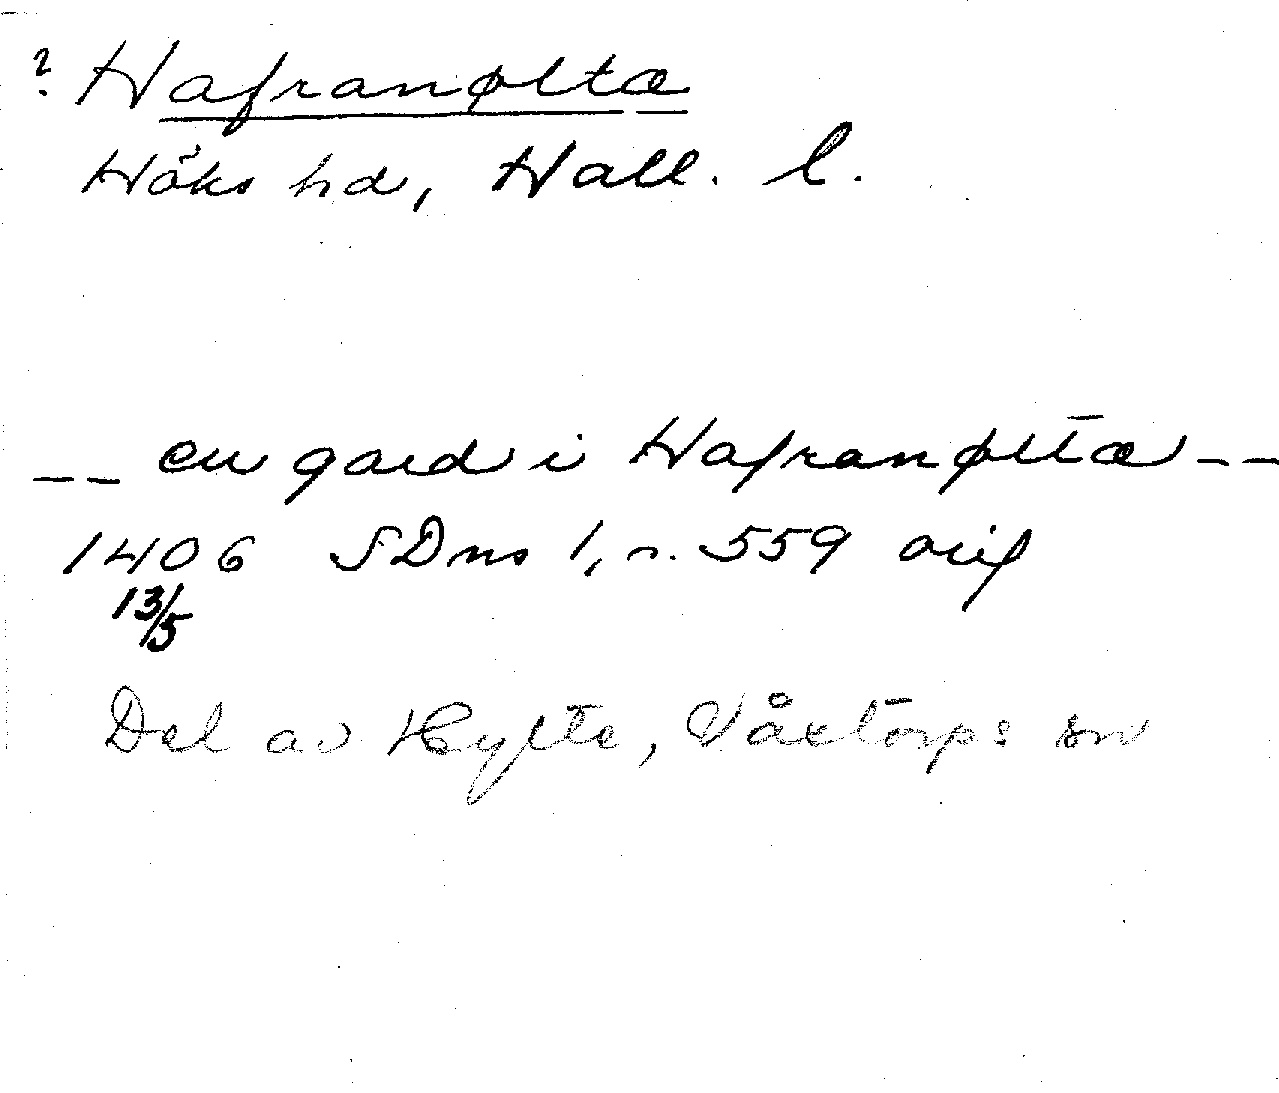 ? Hafranøltæ
Höks hd, Hall. l.
-- en gard i Hafranøltæ --
1406 SDns 1, n. 559 orig
13/5
Del av Hylte, Våxtorps sn